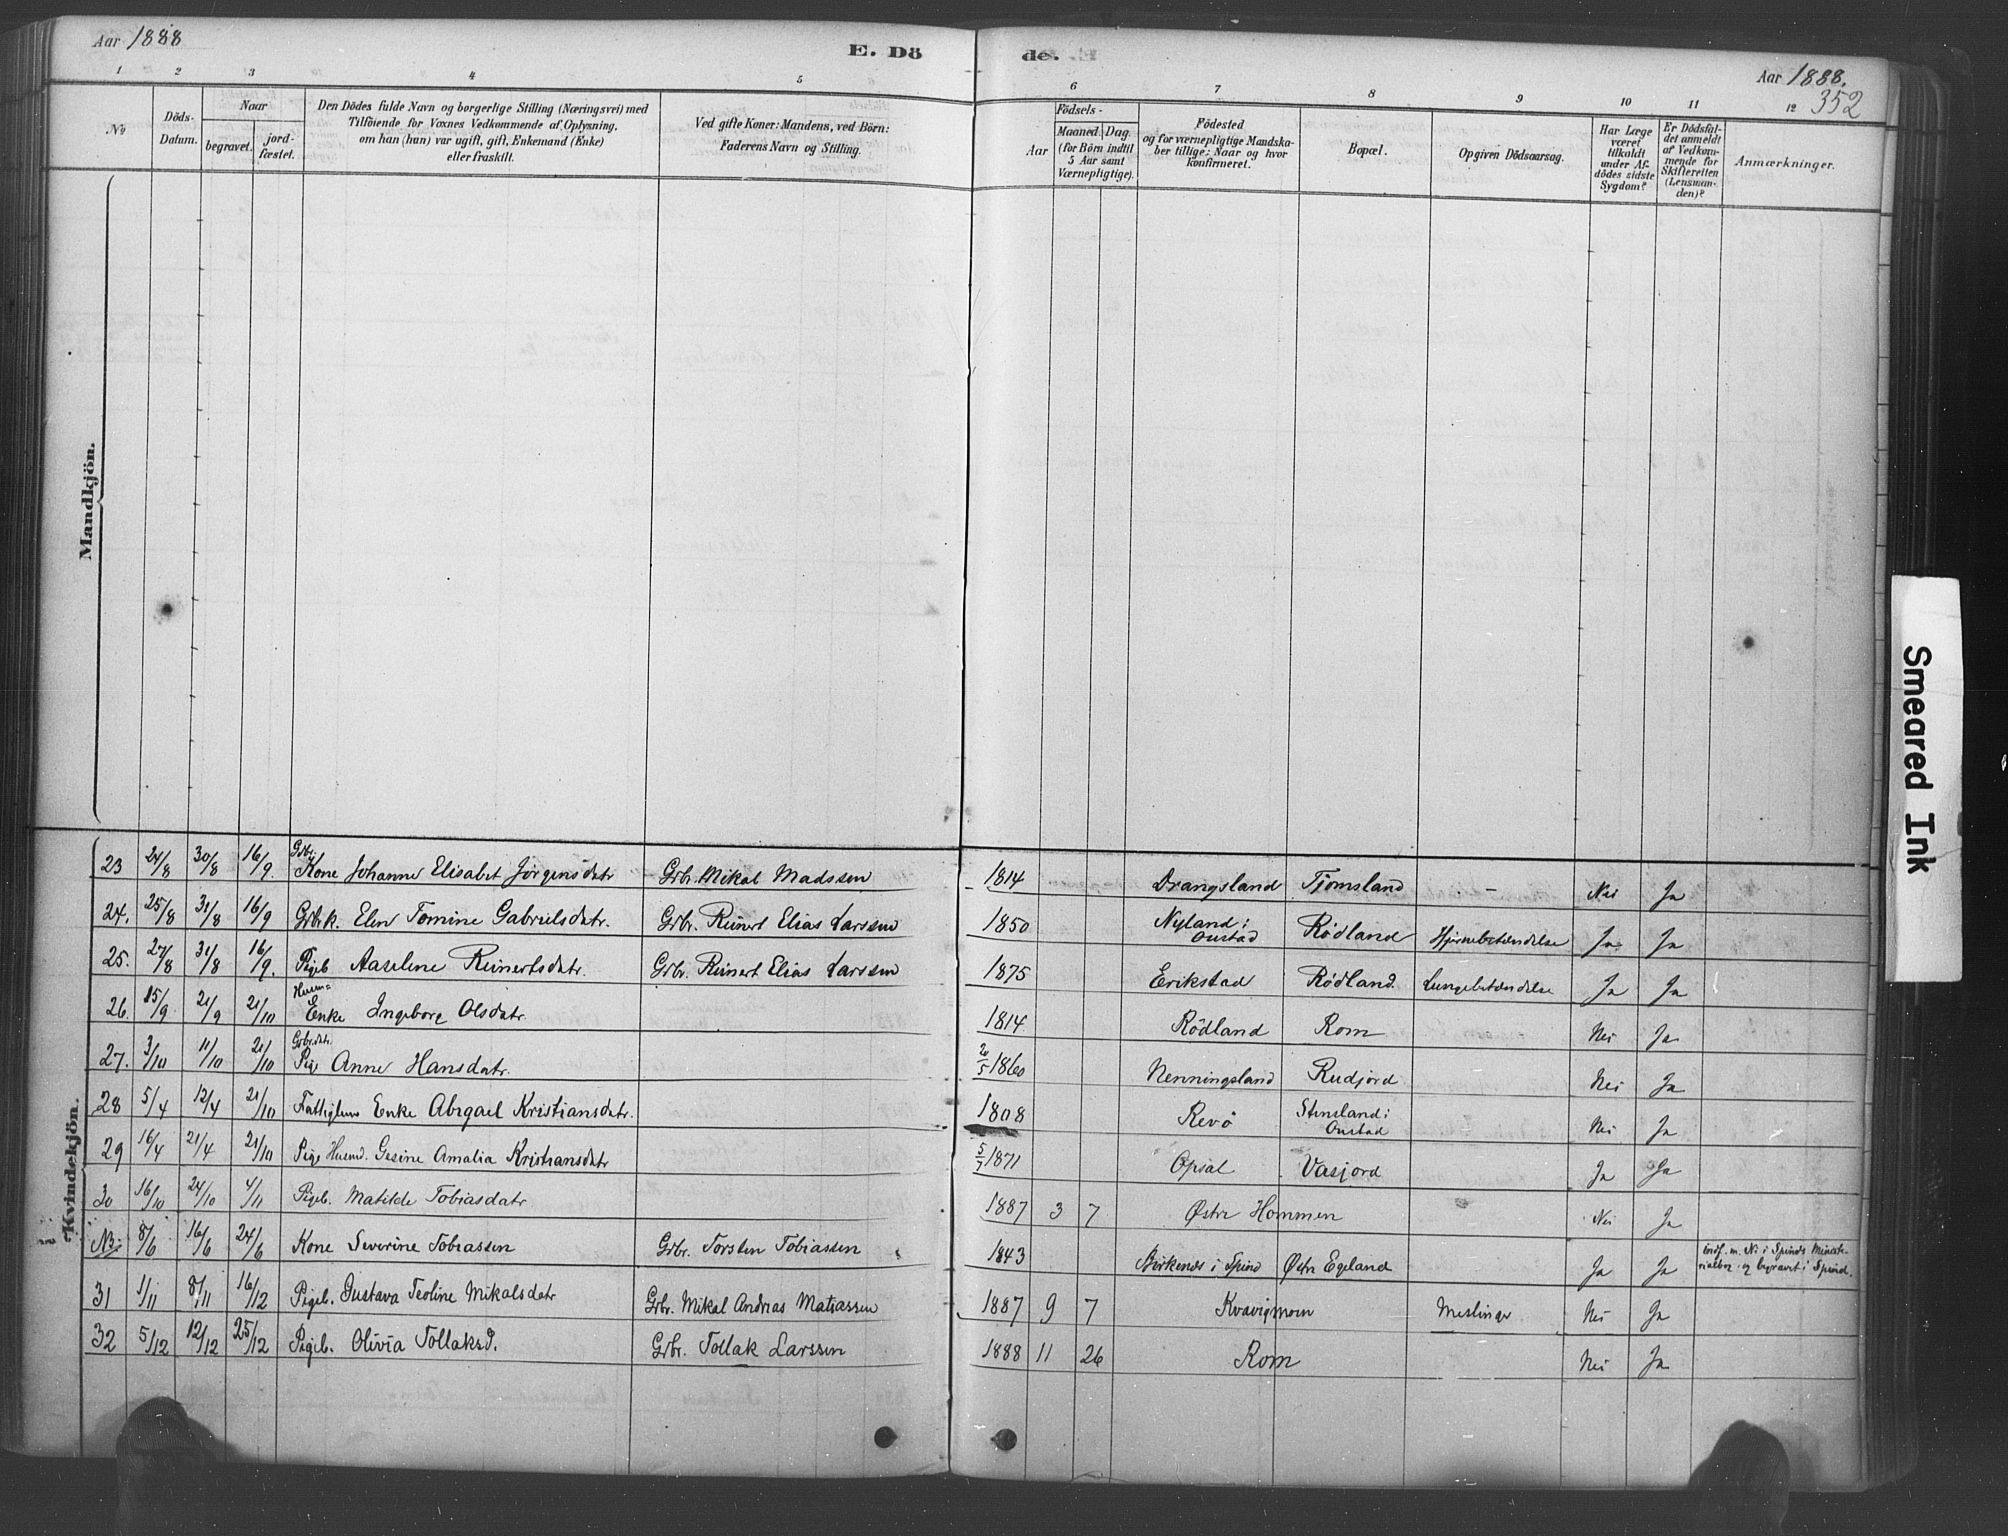 Aar 1888
E. Dö
de.
Aar 1888.
352
1 2 3 4 5 6 7 8 9 10 11 12
No
Döds-Datum.
Naar
begravet.
jord-fæstet.
Den Dödes fulde Navn og borgerlige Stilling (Næringsvei) med
Tilföiende for Voxnes Vedkommende af Oplysning,
om han (hun) var ugift, gift, Enkemand (Enke)
eller fraskilt.
Ved gifte Koner: Mandens, ved Börn:
Faderens Navn og Stilling.
Födsels-
Aar
Maaned. Dag.
(for Börn indtil
5 Aar samt
Værnepligtige).
Födested
og for værnepligtige Mandska-
ber tillige: Naar og hvor
konfirmeret.
Bopæl.
Opgiven Dödsaarsag.
Har Læge
været
tilkaldt
under Af-
dödes sidste
Sygdom?
Er Dödsfal-
det anmeldt
af Vedkom-
mende for
Skifteretten
(Lensman-
den)?
Anmærkninger.
Mandkjön.
Kvindekjön.
23 24/8 30/8 16/9. Gbr. Kone Johanne Elisabet Jörgensdatr Grbr. Mikal Madssen 1814 Drangsland Tjomsland - Nei Ja
24. 25/8 31/8 16/9 Grbrk. Elen Tomine Gabrielsdatr. Grbr. Reinert Elias Larssen 1850 Nyland i Oustad Rödland Hjernebetændelse Ja Ja
25. 27/8 31/8 16/9. Pigeb Aaselene Reinertsdatr. Grbr. Reinert Elias Larssen 1875 Erikstad Rödland Lungebetændelse Ja Ja
26. 15/9 21/9 21/10 Huum= Enke Ingeborg Olsdatr. 1814 Rödland Rom Nei Ja
27. 3/10 11/10 21/10 Grbr.datr. Pige Anne Hansdatr. 20/5 1860 Nenningsland Rudjord Nei Ja
28 5/4 12/4 21/10 Fattiglem Enke Abigael Kristiansdatr. 1808 Revö Stensland i Oustad Nei Ja
29 16/4 21/4 21/10 Pige Huumd. Gesine Amalia Kristiansdatr 5/7 1871 Opsal Vasjord Ja Ja
30 16/10 24/10 4/11 Pigeb. Matilde Tobiasdatr 1887 3 7 Østre Hommen Nei Ja
NB. 8/6 16/6 24/6 Kone Severine Tobiassen Grbr. Torsten Tobiassen 1843 Birkenes i Spind Østre Egeland Ja Ja indf. m. No i Spinds Ministe-
rialbog og begravet i Spind.
31 1/11 8/11 16/12 Pigeb. Gustava Teoline Mikalsdatr Grbr. Mikal Andreas Matiassen 1887 9 7 Kvavigmoen Meslinger Nei Ja
32 5/12 12/12 25/12 Pigeb. Olivia Tollaksd. Grbr. Tollak Larssen 1888 11 26 Rom Nei Ja
Smeared Ink